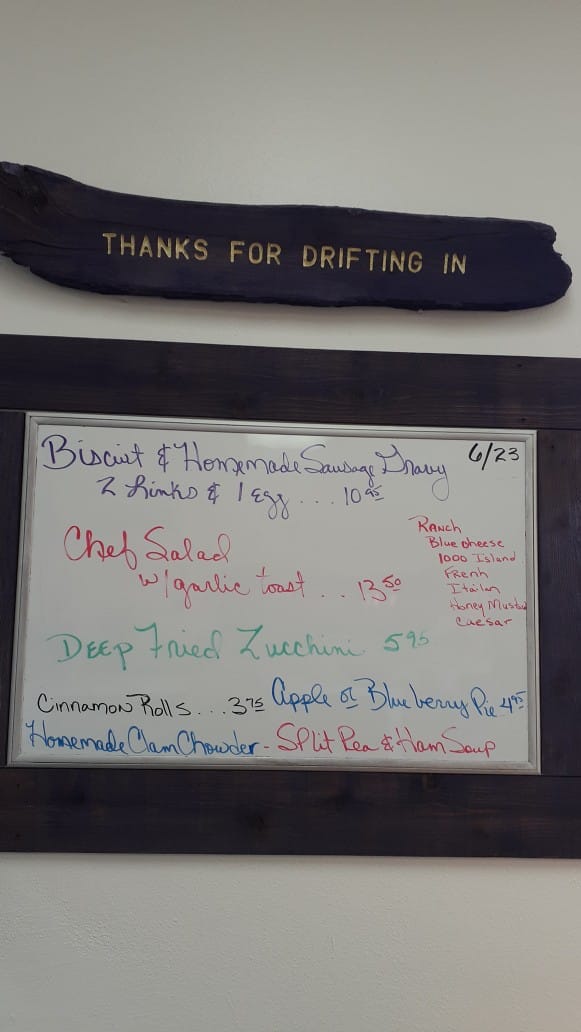 THANKS FOR DRIFTING IN
6/23
Biscuit & Homemade Sausage Gravy
2 Links & 1 egg . . . 10 95
Chef Salad
w/ garlic toast . . 13 50
RANCH
Blue cheese
1000 Island
Frenh
Itailan
Honey Mustard
Caesar
DEEP Fried Zucchini 5 95
Cinnamon Rolls . . . 3 75
Apple or Blueberry Pie 4 95
Homemade Clam Chowder - Split Pea & Ham Soup